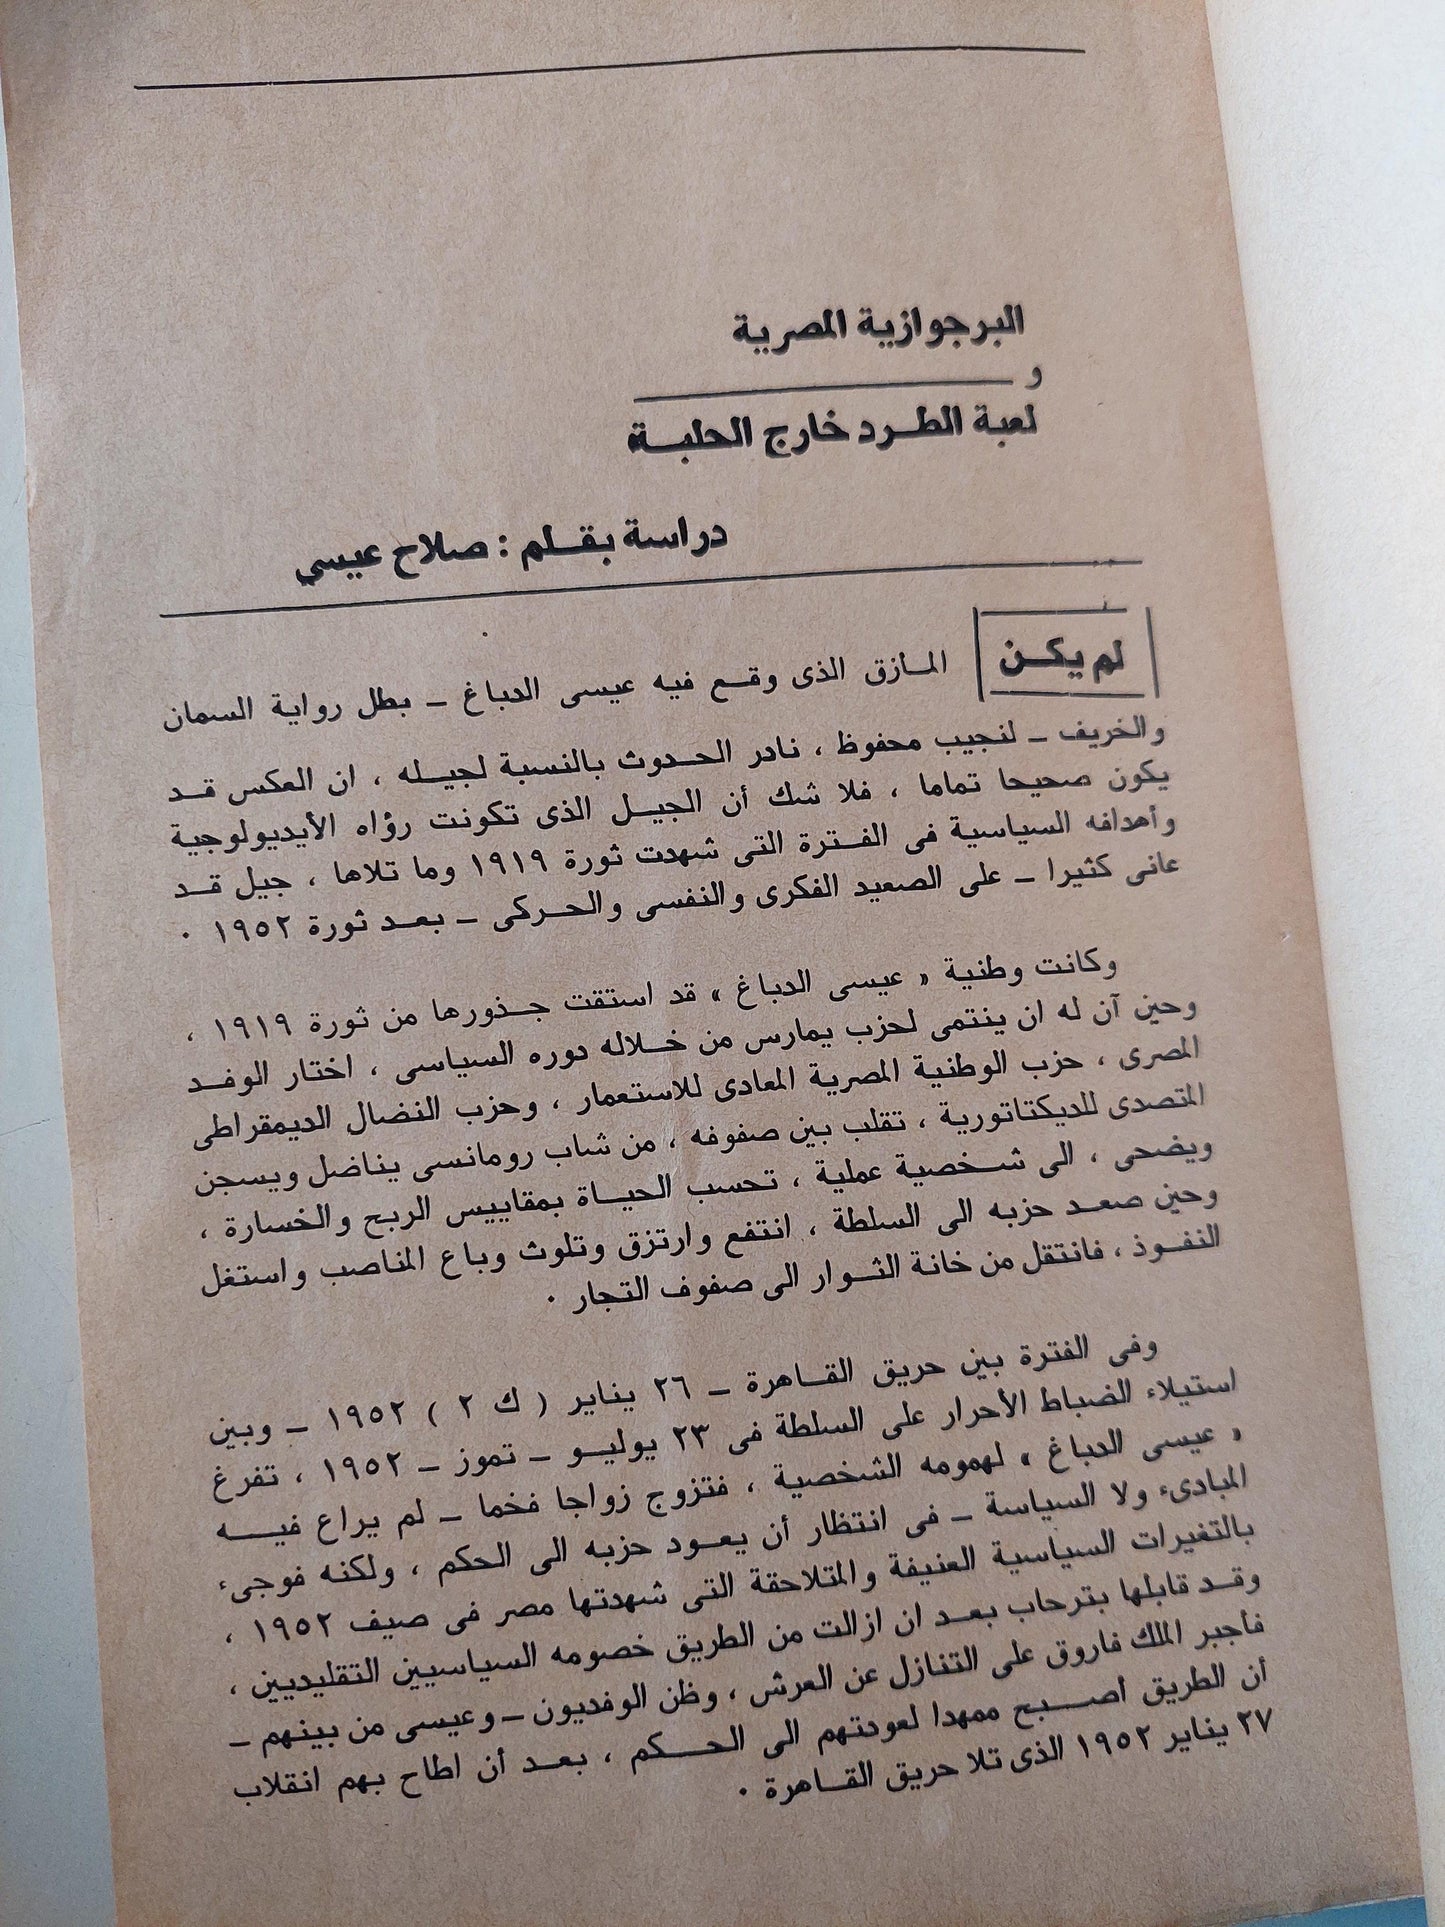 البرجوازية المصرية
و
لعبة الطرد خارج الحلبة
دراسة بقلم : صلاح عيسى
لم يكن المازق الذى وقع فيه عيسى الدباغ – بطل رواية السمان
والخريف – لنجيب محفوظ ، نادر الحدوث بالنسبة لجيله ، ان العكس قد
يكون صحيحا تماما ، فلا شك أن الجيل الذى تكونت رؤاه الأيديولوجية
وأهدافه السياسية فى الفترة التى شهدت ثورة ١٩١٩ وما تلاها ، جيل قد
عانى كثيرا – على الصعيد الفكرى والنفسى والحركى – بعد ثورة ١٩٥٢ ٠
وكانت وطنية « عيسى الدباغ » قد استقت جذورها من ثورة ١٩١٩ ،
وحين آن له ان ينتمى لحزب يمارس من خلاله دوره السياسى ، اختار الوفد
المصرى ، حزب الوطنية المصرية المعادى للاستعمار ، وحزب النضال الديمقراطى
المتصدى للديكتاتورية ، تقلب بين صفوفه ، من شاب رومانسى يناضل ويسجن
ويضحى ، الى شخصية عملية ، تحسب الحياة بمقاييس الربح والخسارة ،
وحين صعد حزبه الى السلطة ، انتفع وارتزق وتلوث وباع المناصب واستغل
النفوذ ، فانتقل من خانة الثوار الى صفوف التجار ٠
وفى الفترة بين حريق القاهرة – ٢٦ يناير ( ك ٢ ) ١٩٥٢ – وبين
استيلاء الضباط الأحرار على السلطة فى ٢٣ يوليو – تموز – ١٩٥٢ ، تفرغ
« عيسى الدباغ » لهمومه الشخصية ، فتزوج زواجا فخما – لم يراع فيه
المبادىء ولا السياسة – فى انتظار أن يعود حزبه الى الحكم ، ولكنه فوجىء
بالتغيرات السياسية العنيفة والمتلاحقة التى شهدتها مصر فى صيف ١٩٥٢ ،
وقد قابلها بترحاب بعد ان ازالت من الطريق خصومه السياسيين التقليديين ،
فأجبر الملك فاروق على التنازل عن العرش ، وظن الوفديون – وعيسى من بينهم –
أن الطريق أصبح ممهدا لعودتهم الى الحكم ، بعد أن اطاح بهم انقلاب
٢٧ يناير ١٩٥٢ الذى تلا حريق القاهرة ٠